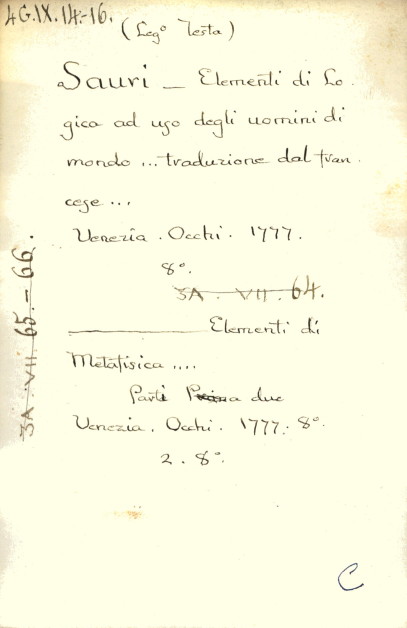 4G.IX.14-16.
(Leg° Testa)
Sauri — Elementi di Lo-
gica ad uso degli uomini di
mondo ... traduzione dal fran-
cese ...
Venezia. Occhi. 1777.
8°.
3A. VII. 64.
Elementi di
Metafisica ....
Parti Prima due
Venezia. Occhi. 1777. 8°.
2. 8°.
3A. VII. 65. - 66.
C